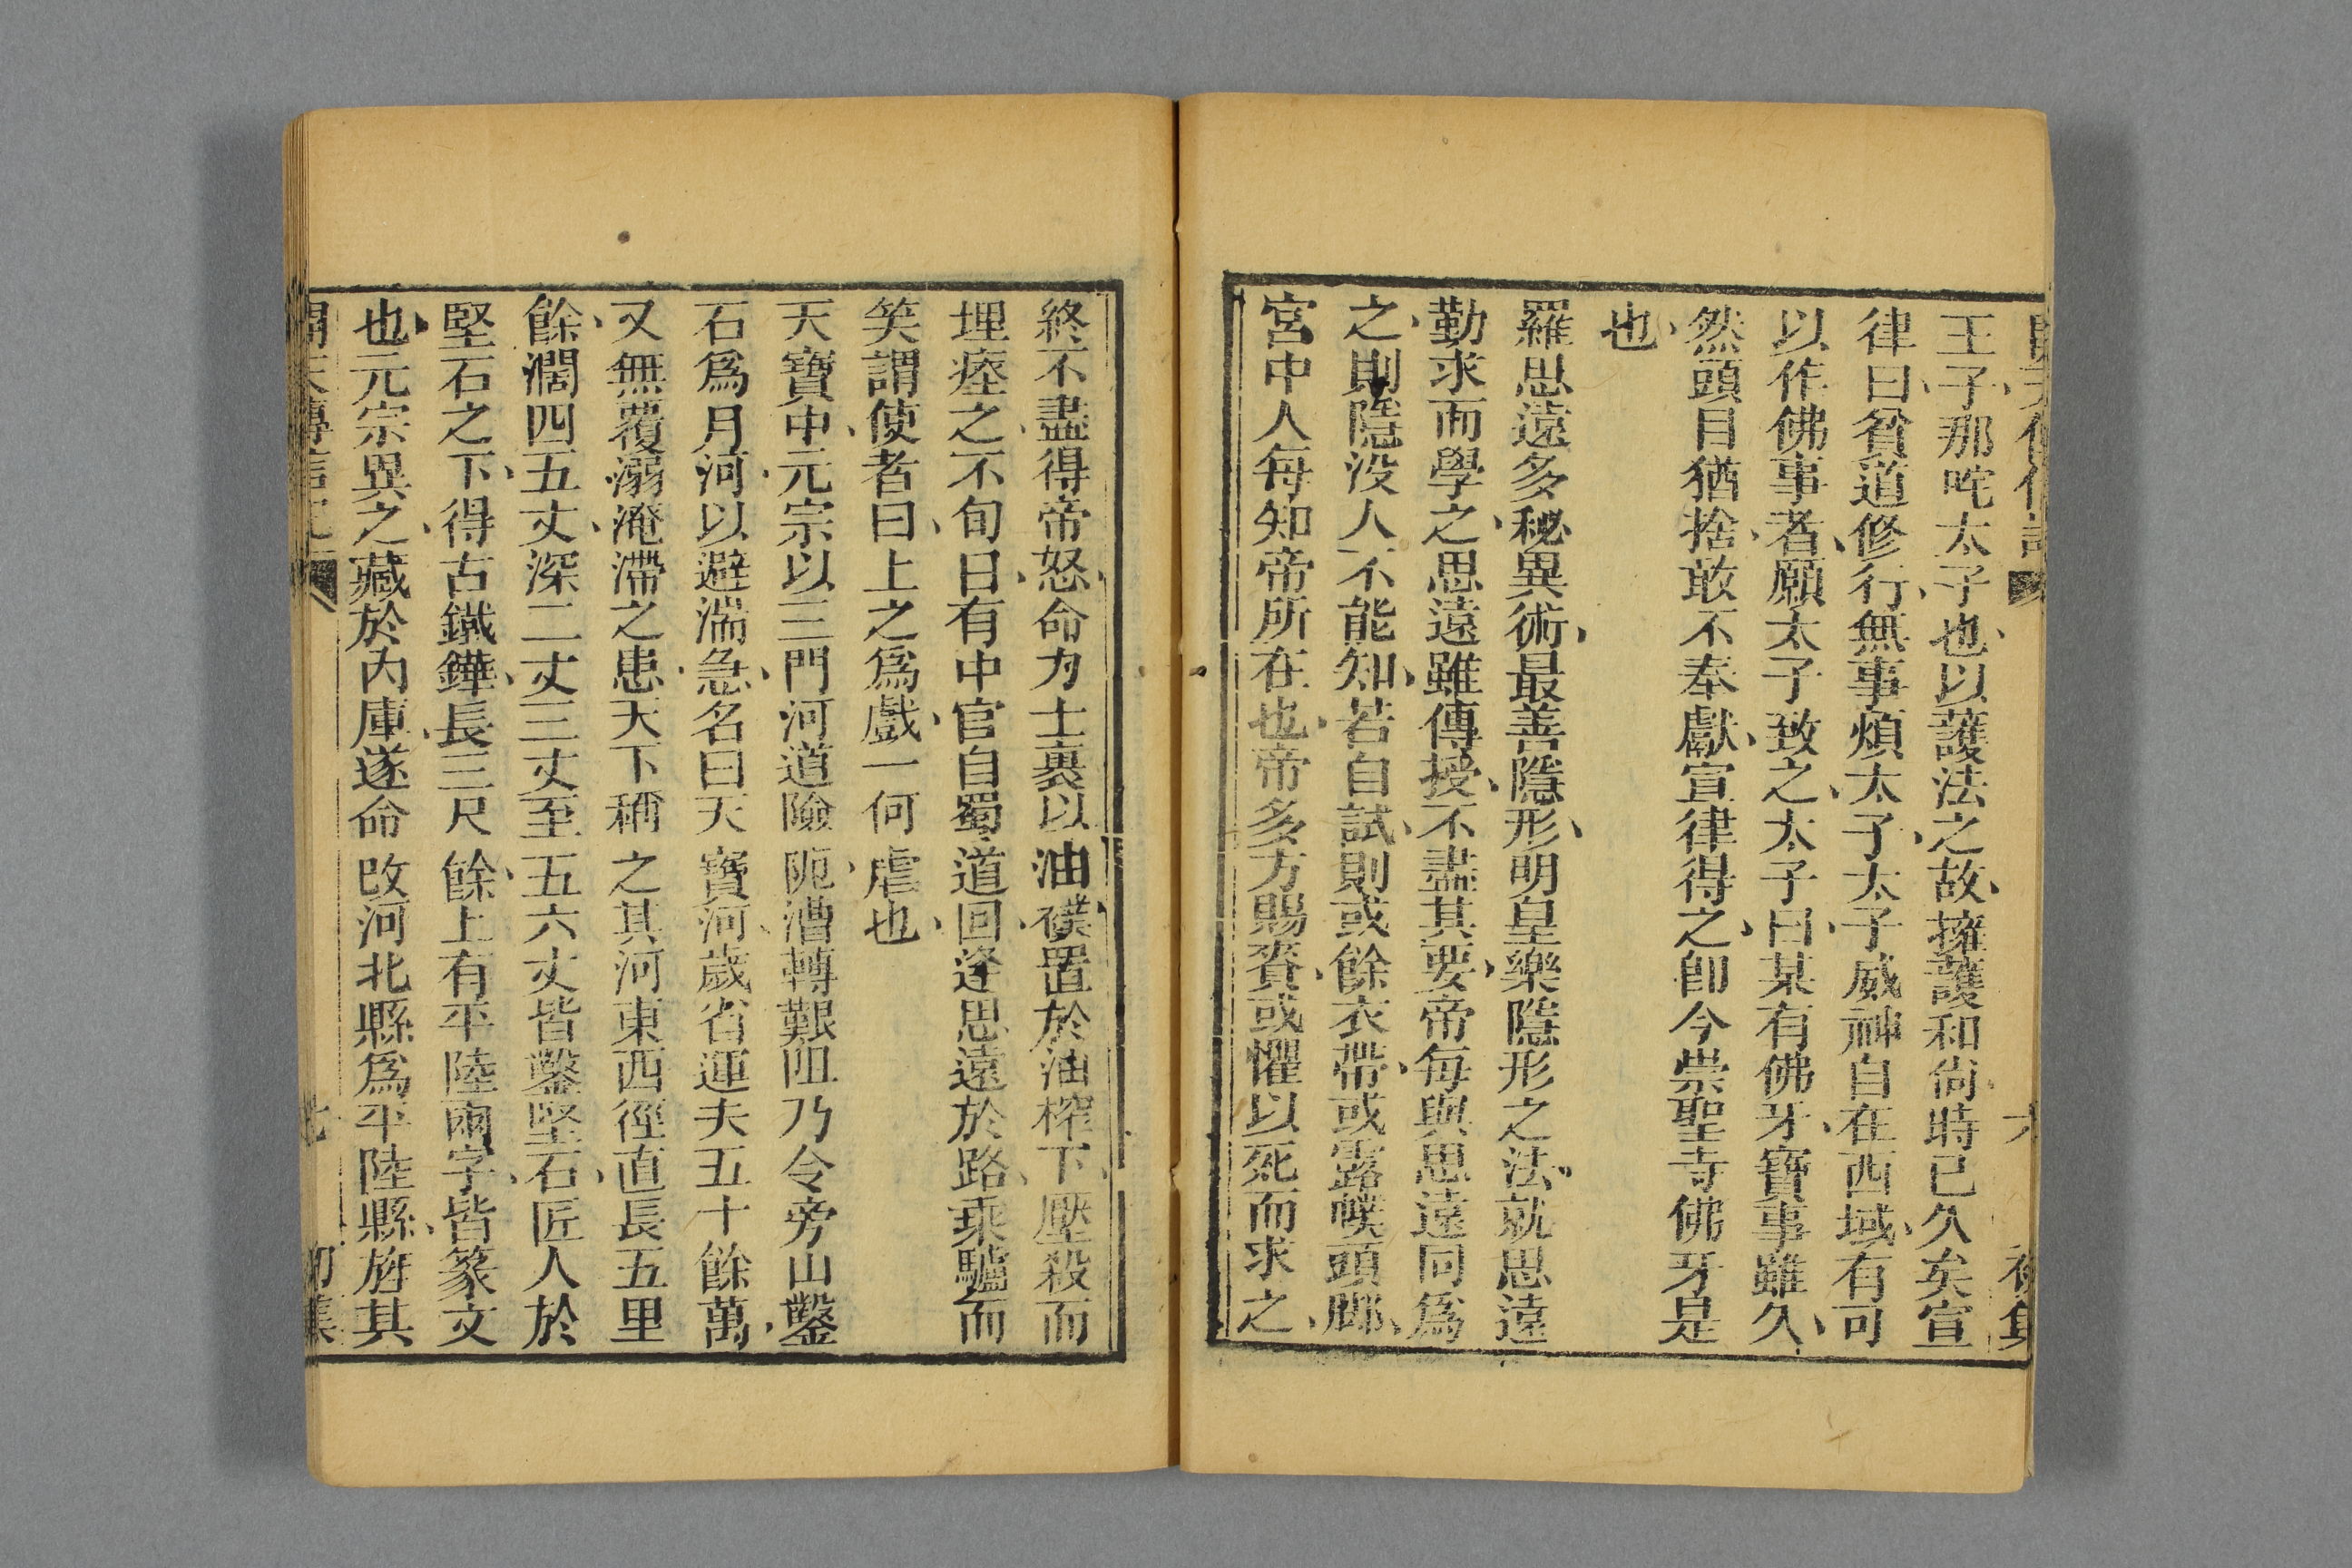 王子那咤太子也以護法之故擁護和尚時已久矣宣
律曰貧道修行無事煩太子太子威神自在西域有可
以作佛事者願太子致之太子曰某有佛牙寶事雖久
然頭目猶捨敢不奉獻宣律得之卽今崇聖寺佛牙是
也
羅思遠多秘異術最善隱形明皇樂隱形之法就思遠
勤求而學之思遠雖傳授不盡其要帝每與思遠同爲
之則隱没人不能知若自試則或餘衣帶或露幞頭脚
宮中人每知帝所在也帝多方賜賚或懼以死而求之
終不盡得帝怒命力士裹以油襆置於油榨下壓殺而
埋瘞之不旬日有中官自蜀道回逢思遠於路乘驢而
笑謂使者曰上之爲戲一何虐也
天寶中元宗以三門河道險阨漕轉艱阻乃令旁山鑿
石爲月河以避湍急名曰天寶河歲省運夫五十餘萬
又無覆溺淹滯之患天下稱之其河東西徑直長五里
餘濶四五丈深二丈三丈至五六丈皆鑿堅石匠人於
堅石之下得古鐵鏵長三尺餘上有平陸兩字皆篆文
也元宗異之藏於內庫遂命改河北縣爲平陸縣旌其